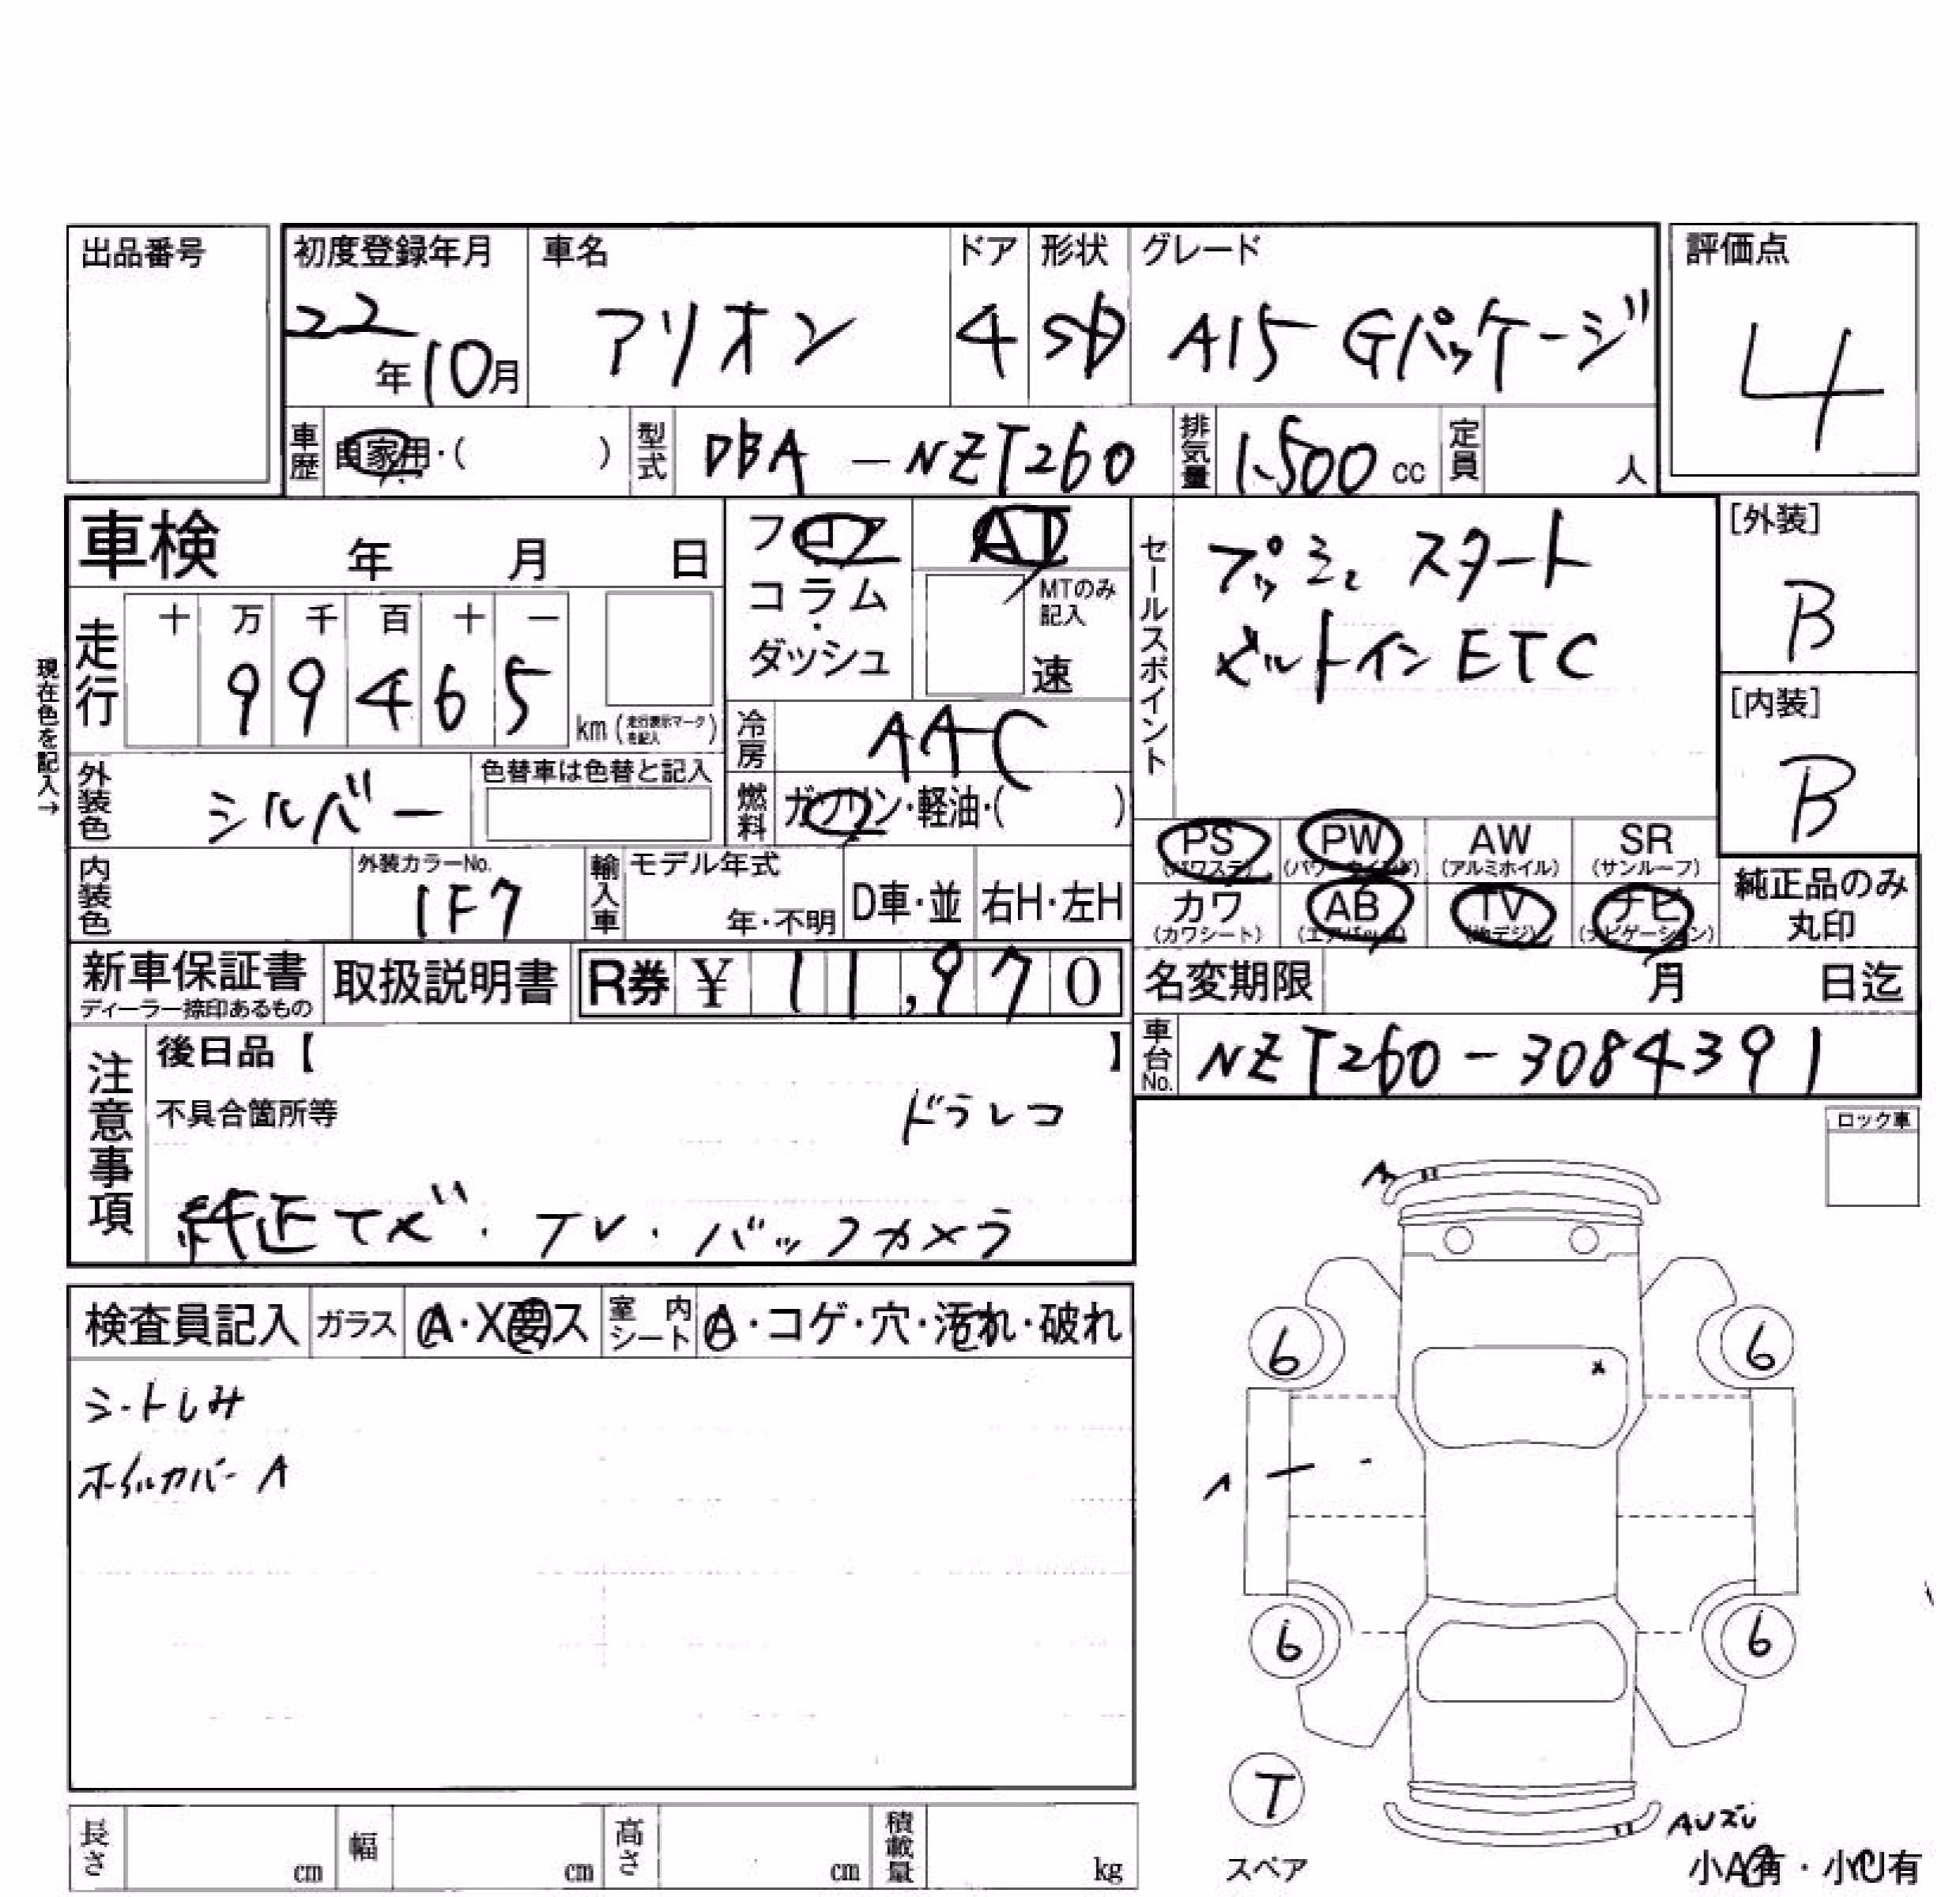 出品番号
初度登録年月
22年10月
車名
アリオン
ドア
4
形状
SD
グレード
A15 Gパッケージ
評価点
4
車歴
自家用・( )
型式
DBA-NZT260
排気量
1,500 cc
定員
人
車検 年 月 日
フロア
コラム
・
ダッシュ
AT
MTのみ
記入
速
セールスポイント
プッシュスタート
ビルトインETC
[外装]
B
[内装]
B
現在色を記入→
走行
十 万 千 百 十 一
9 9 4 6 5
km (走行表示マークを記入)
冷房
AAC
外装色
シルバー
色替車は色替と記入
燃料
ガソリン・軽油・( )
PS
(パワステ)
PW
(パワーウインド)
AW
(アルミホイル)
SR
(サンルーフ)
カワ
(カワシート)
AB
(エアバッグ)
TV
(地デジ)
ナビ
(ナビゲーション)
純正品のみ
丸印
内装色
外装カラーNo.
1F7
輸入車
モデル年式
年・不明
D車・並
右H・左H
新車保証書
ディーラー捺印あるもの
取扱説明書
R券 ¥ 11,970
名変期限 月 日迄
車台No.
NZT260-3084391
注意事項
後日品【 】
不具合箇所等
ドラレコ
純正ナビ・TV・バックカメラ
ロック車
検査員記入
ガラス
A・X要ス
室内シート
A・コゲ・穴・汚れ・破れ
シートしみ
ホイルカバーA
A
x
6
6
A
6
6
T
スペア
小A有・小U有
長さ cm
幅 cm
高さ cm
積載量 kg